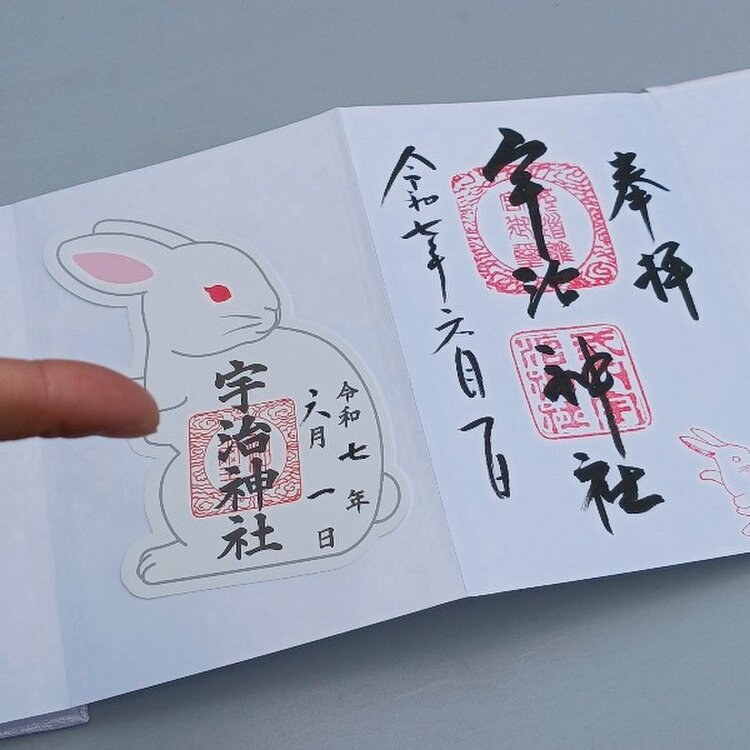 奉拝
宇治神社
令和七年六月一日
令和七年
六月一日
宇治神社